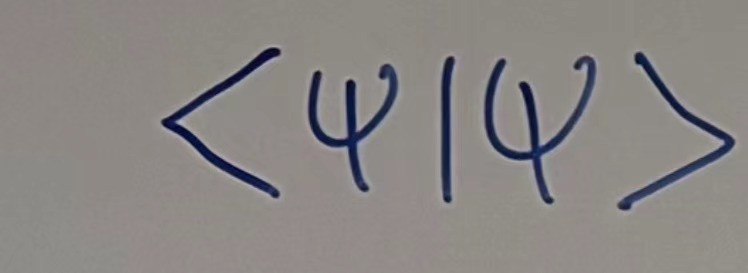 <ψ|ψ>